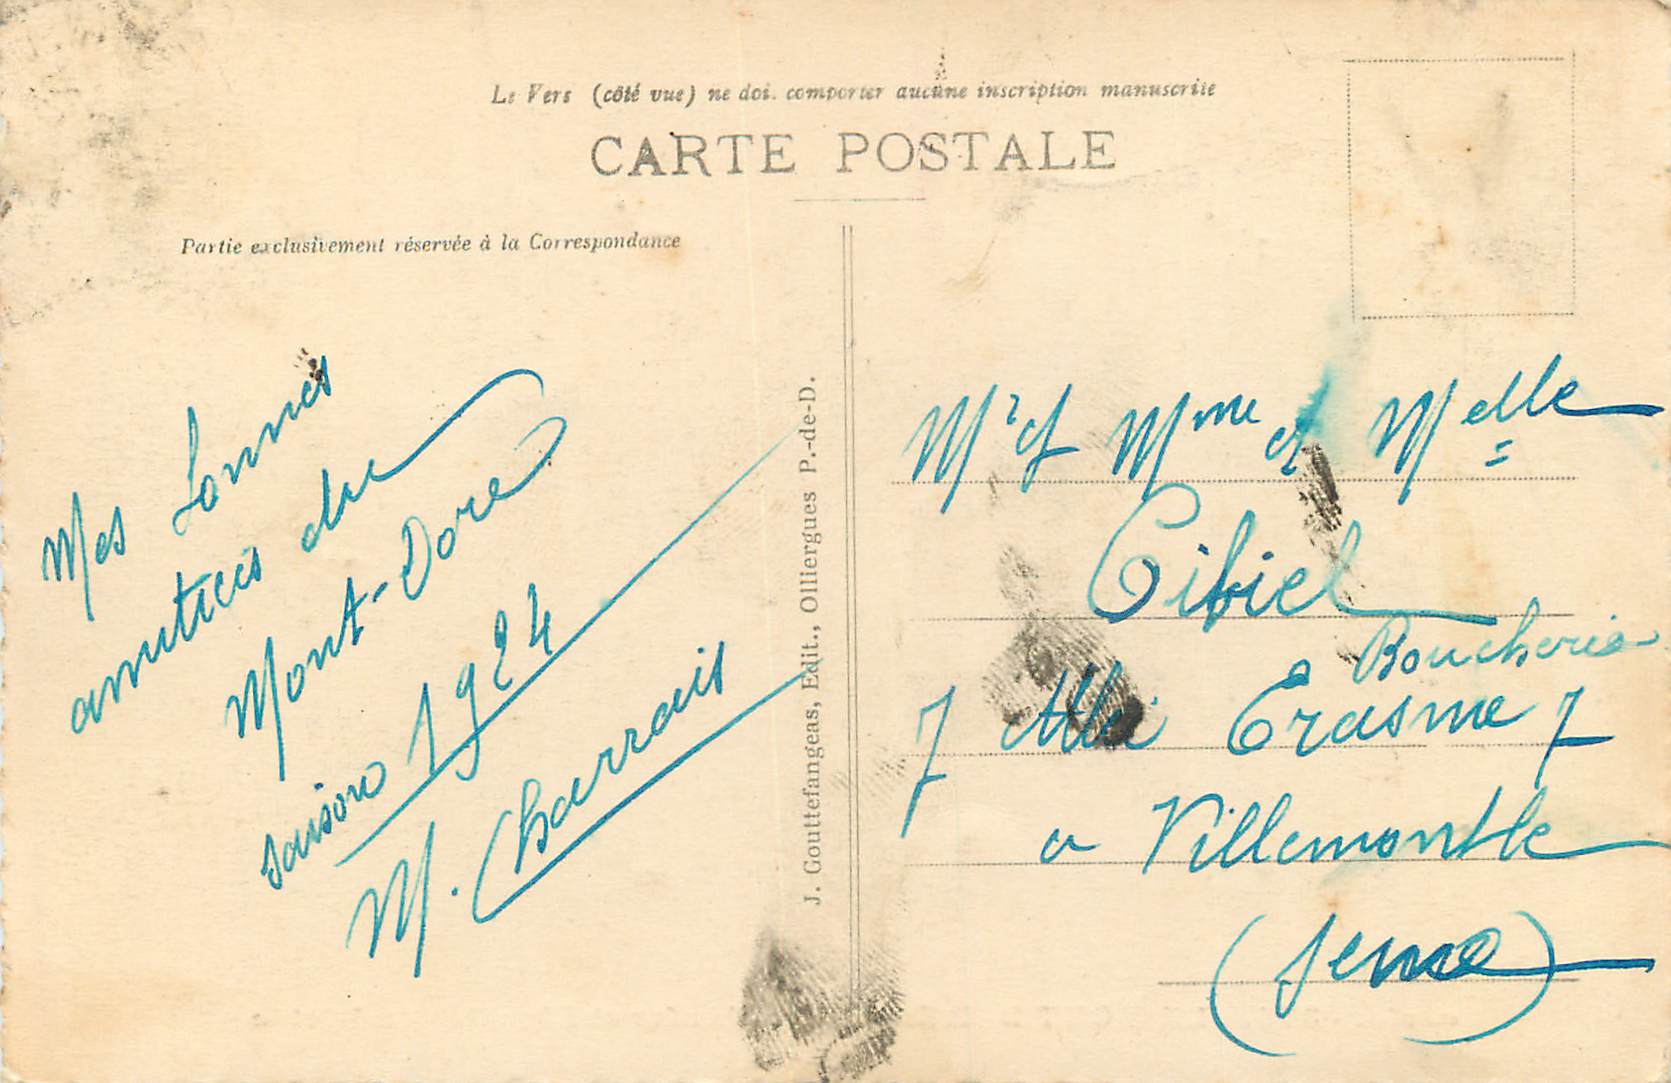 Le Vers (côté vue) ne doit comporter aucune inscription manuscrite
CARTE POSTALE
Partie exclusivement réservée à la Correspondance
Mes bonnes
amitiés du
Mont-Dore
saison 1924
M. Charrais
J. Gouttefangeas, Edit., Olliergues P.-de-D.
Mr et Mme et Melle
Cibiel
Boucherie
7 Erasme 7
a Villemomble
(Seine)